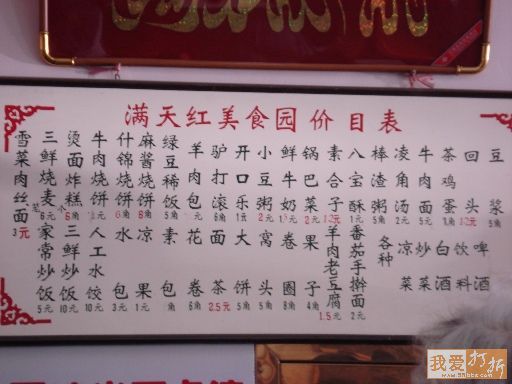 满天红美食园价目表
雪菜肉丝面 3元
三鲜烧麦
烫面炸糕 6角
牛肉烧饼
什锦烧饼 6角
麻酱烧饼 6角
绿豆稀饭 5角
羊肉包
驴打滚
开口乐
小豆粥 2元
鲜牛奶
锅巴菜 2元
素合子 1.2元
八宝粥
棒渣粥 5角
凌角汤
牛肉面
茶鸡蛋
回头
豆浆 5角
家常炒饭 5元
三鲜炒饭 10元
人工水饺 10元
水包 3元
凉果 1元
素包
花卷 6角
面茶 2.5元
大饼 5元
窝头 5角
卷圈 8角
果子 4角
羊肉老豆腐 1.5元
番茄手擀面 2元
各种
凉菜
炒菜
白酒
饮料
啤酒
我爱打折